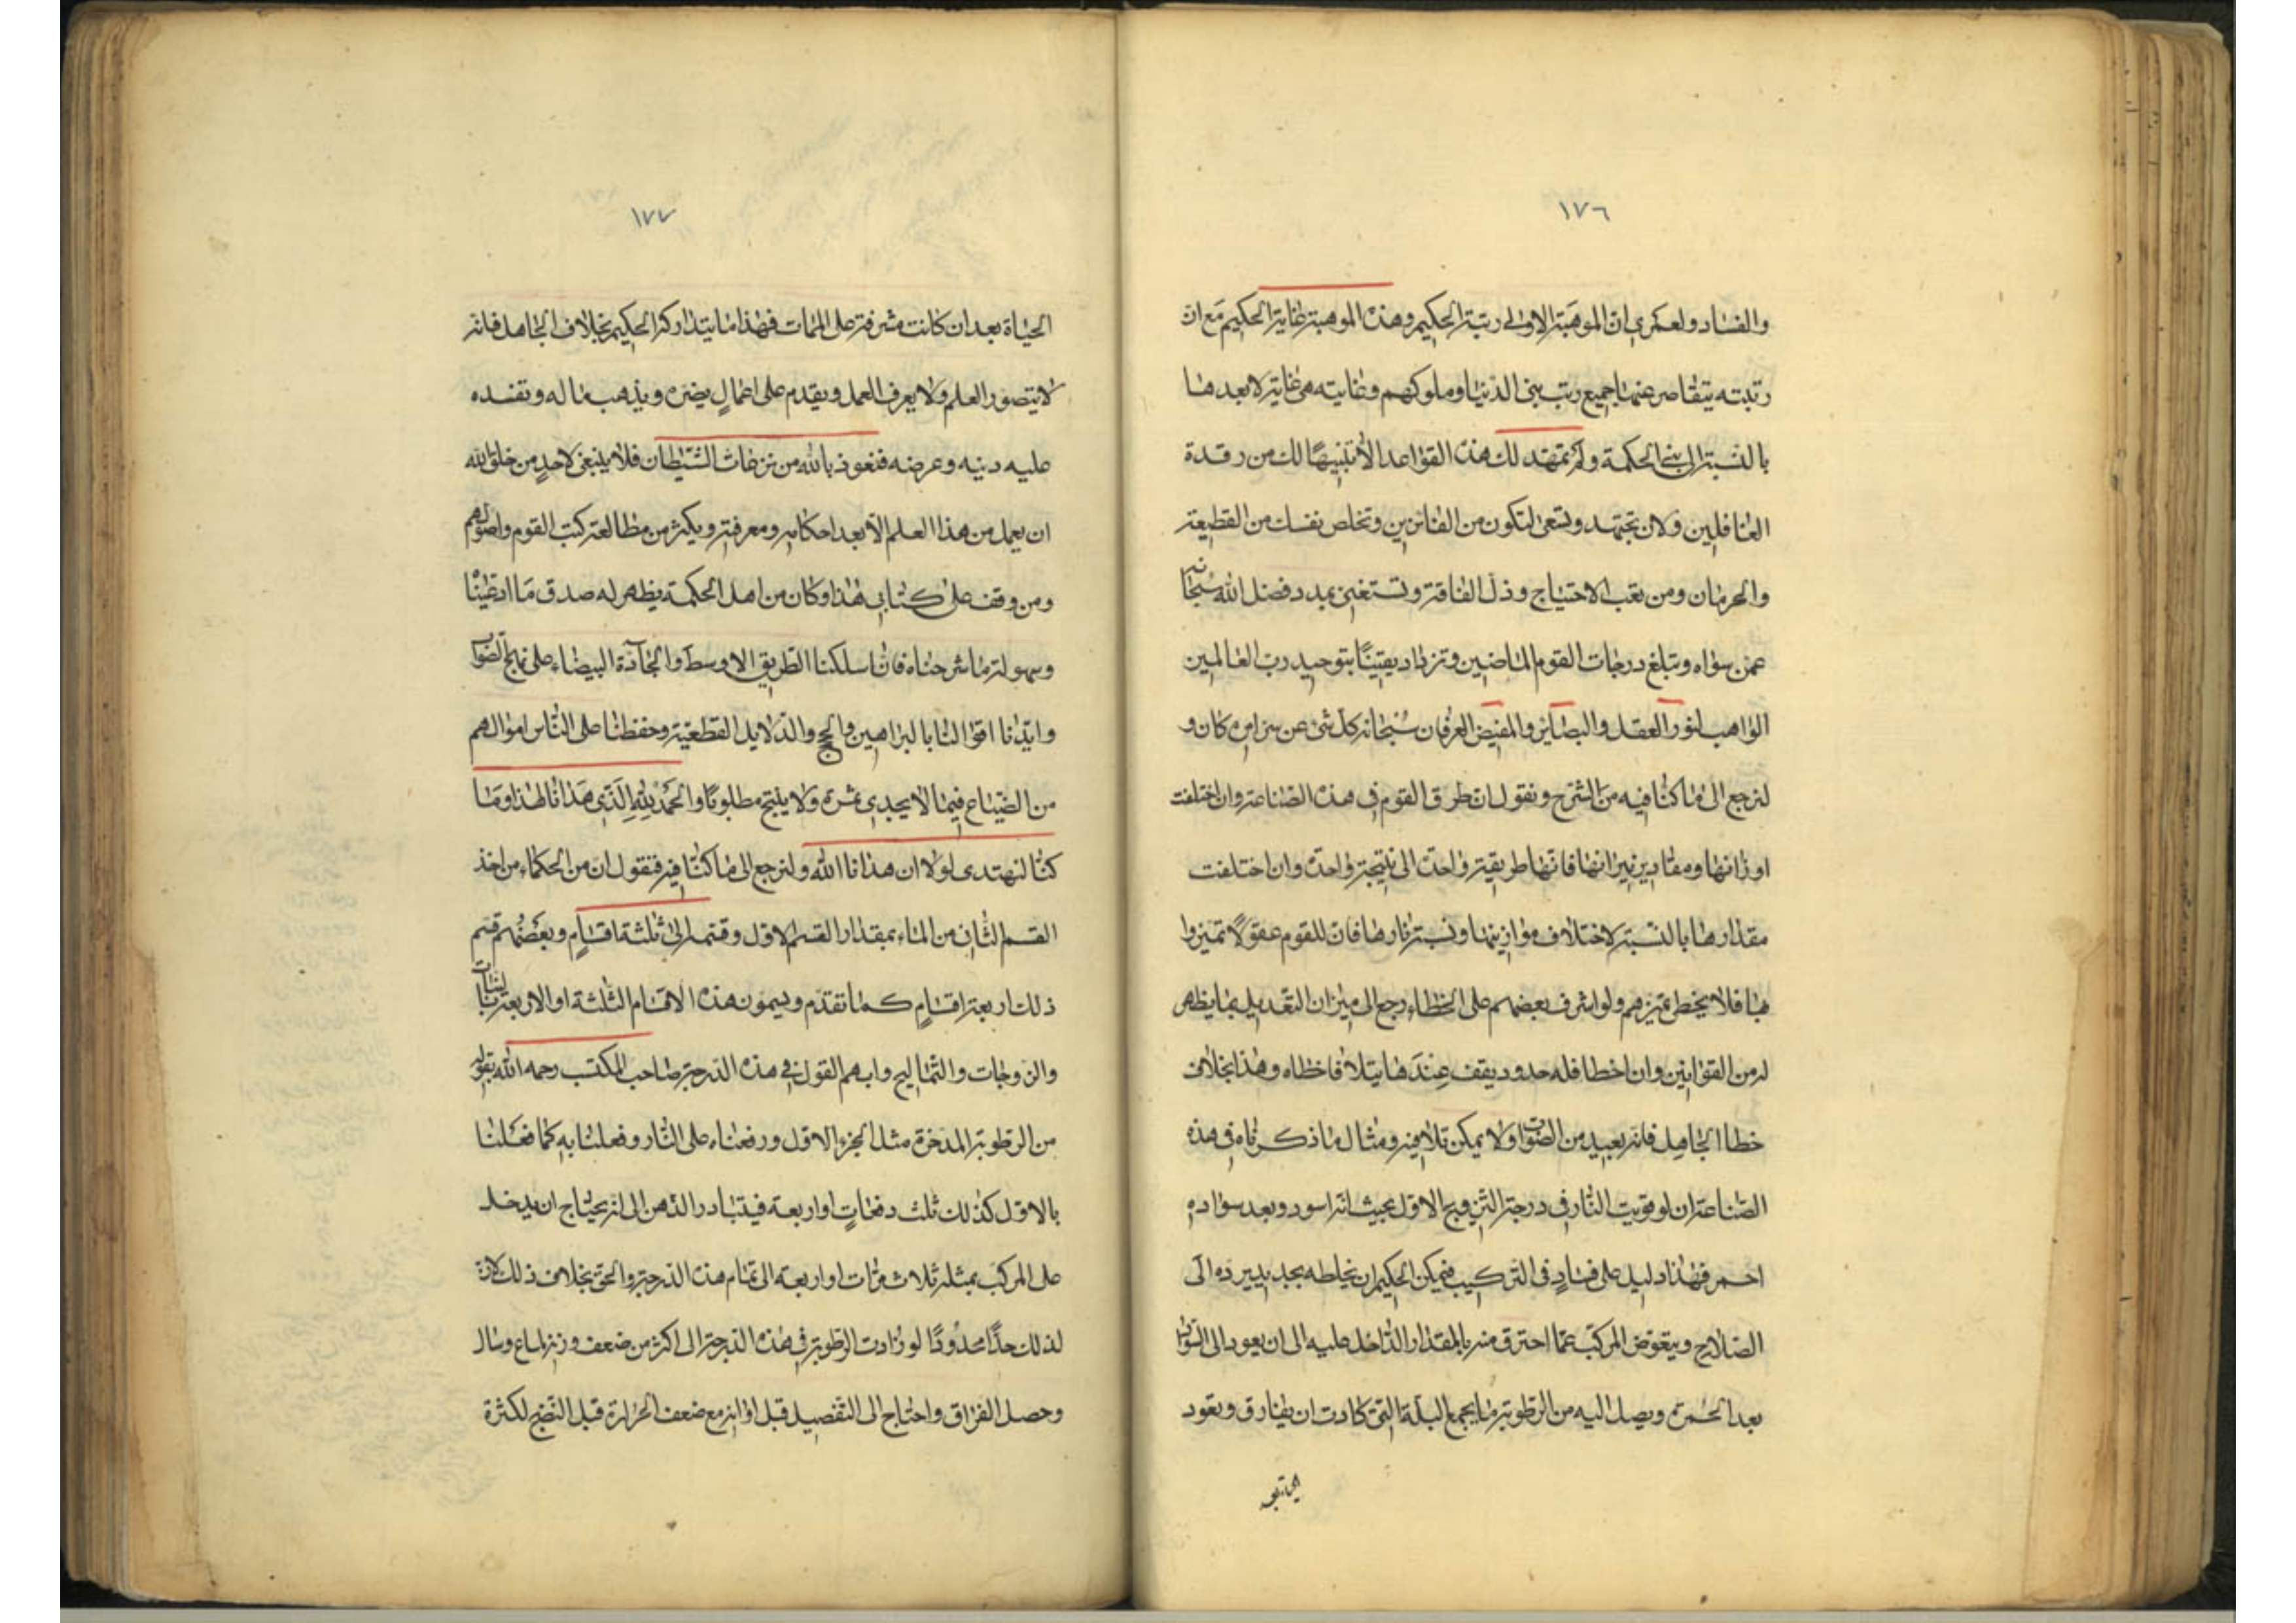 ١٧٦
والفساد ولعمري ان الموهبة الاولى رتبة الحكيم وهذه الموهبة غاية الحكيم مع ان
رتبته يتقاصر عنها جميع رتب بني الدنيا وملوكهم وغايته هي غاية لا بعدها
بالنسبة الى بني الحكمة ولم نمهد لك هذه القواعد الا تنبيهًا لك من رقدة
الغافلين ولان تجتهد وتسعى لتكون من الفائزين وتخلص نفسك من القطيعة
والحرمان ومن تعب الاحتياج وذل الفاقة وتستغني بمدد فضل الله سبحانه
عمن سواه وتبلغ درجات القوم الماضين وتزداد يقينًا بتوحيد رب العالمين
الواهب لنور العقل والبصاير والمفيض العرفان سبحانه كل شئ عن سر امره كان و
لنرجع الى ما كنا فيه من الشرح ونقول ان طرق القوم في هذه الصناعة وان اختلفت
اوزانها ومقادير نيرانها فانها طريقة واحدة الى نتيجة واحدة وان اختلفت
مقدارها بالنسبة لاختلاف موازينها ونسبة نارها فان للقوم عقولًا تميزوا
بها فلا يخطئ تميزهم ولو اشرف بعضهم على الخطاء رجع الى ميزان التعديل بما يظهر
له من القوانين وان اخطا فله حدود يقف عندها يتلافا خطاه وهذا بخلاف
خطا الجاهل فانه بعيد من الصواب ولا يمكن تلافيه ومثال ما ذكرناه في هذه
الصناعة ان لو قويت النار في درجة التزويج الاول بحيث انه اسود وبعد سواده
احمر فهذا دليل على فساد في التركيب فيمكن الحكيم ان يخلطه بجديد يرده الى
الصلاح ويتعوض المركب عما احترق منه بالمقدار الداخل عليه الى ان يعود الى السواد
بعد الحمرة ويصل اليه من الرطوبة ما يجمع البلة التي كادت ان يفارق وتعود
١٧٧
الحياة بعد ان كانت مشرفة على الممات فهذا ما يتداركه الحكيم بخلاف الجاهل فانه
لا يتصور العلم ولا يعرف العمل ويقدم على اعمالٍ يضره ويذهب ماله وتفسده
عليه دينه وعرضه فنعوذ بالله من نزغات الشيطان فلا ينبغي لاحدٍ من خلق الله
ان يعمل من هذا العلم الا بعد احكامه ومعرفته ويكثر من مطالعة كتب القوم واصولهم
ومن وقف على كتابي هذا وكان من اهل الحكمة يظهر له صدق ما ادعينا
وسهولة ما شرحناه فانا سلكنا الطريق الاوسط والجادة البيضاء على نهج الصواب
وايدنا اقوالنا بالبراهين والحجج والدلايل القطعية وحفظنا على الناس اموالهم
من الضياع فيما لا يجدي ثمرة ولا ينتج مطلوبًا والحمد لله الذي هدانا لهذا وما
كنا لنهتدي لولا ان هدانا الله ولنرجع الى ما كنا فيه فنقول ان من الحكماء من اخذ
القسم الثاني من الماء بمقدار القسم الاول وقسمه الى ثلثة اقسامٍ وبعضهم قسم
ذلك اربعة اقسامٍ كما تقدم ويسمون هذه الاقسام الثلثة او الاربعة بالبنات
والزوجات والتماليح وابهم القول في هذه الدرجة صاحب المكتسب رحمه الله بقوله
من الرطوبة المدخرة مثل الجزء الاول ورفعناه على النار وفعلنا به كما فعلنا
بالاول كذلك ثلث دفعاتٍ او اربعة فيتبادر الذهن الى انه يحتاج ان يدخل
على المركب بمثله ثلاث مرات او اربعة الى تمام هذه الدرجة والحق بخلاف ذلك لان
لذلك حدًا محدودًا لو زادت الرطوبة في هذه الدرجة الى اكثر من ضعف وزنه لماع وسال
وحصل الفراق واحتاج الى التفصيل قبل اوانه مع ضعف الحرارة قبل النضج لكثرة